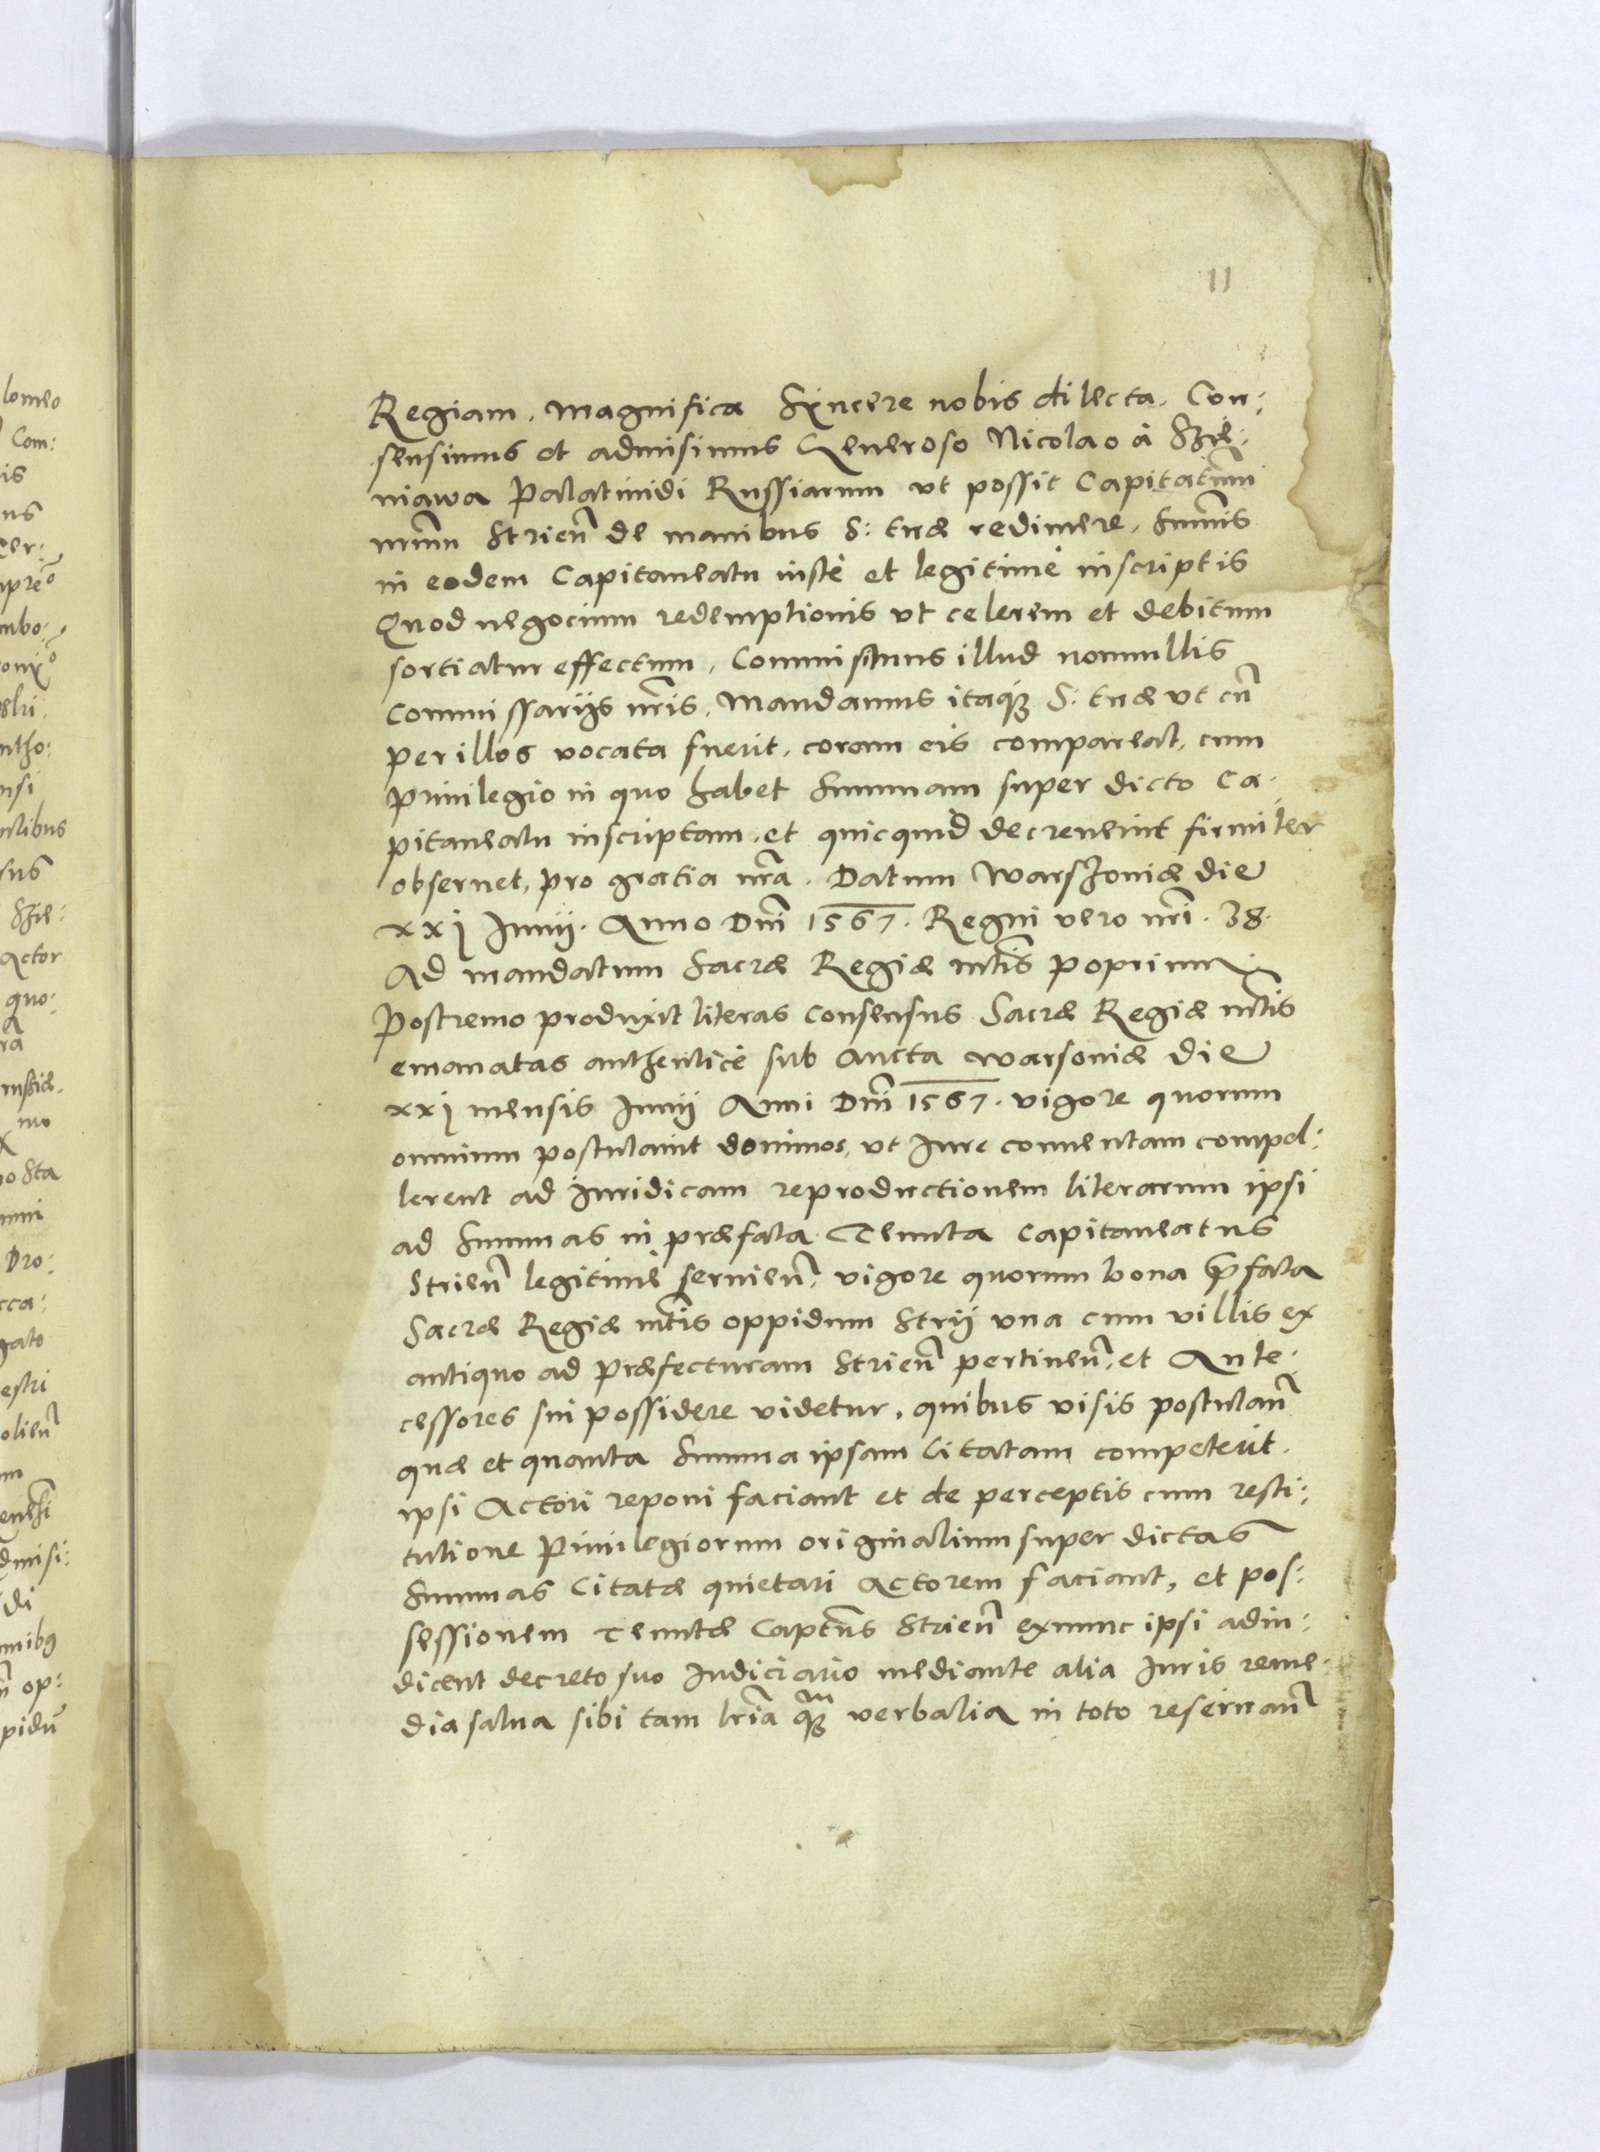 11
Regiam. Magnifica Syncere nobis dilecta. Con:
sensimus et admisimus Generoso Nicolao à Szie:
niawa Palatinidi Russiarum ut possit Capitatum̄
nr̄um Strien̄ de manibus S: tuæ redimere, Sum̄is
in eodem Capitaneatu iustè et legitimè inscriptis
Quod negocium redemptionis ut celerem et debitum
sortiatur effectum, Commisimus illud nonnullis
Commissarijs nr̄is. Mandamus itaq; S: tuæ ut cū
per illos vocata fuerit, coram eis compareat, cum
privilegio in quo habet Summam super dicto Ca:
pitaneatu inscriptam, et quicquid decreverint firmiter
observet, pro gratia nr̄a. Datum Warszoviæ die
xxj Junij. Anno Dn̄i 1567. Regni vero nr̄i. 38.
Ad mandatum Sacræ Regiæ mt̄is poprium
Postremo produxit literas consensus Sacræ Regiæ mt̄is
emanatas authenticè sub aucta Warsoviæ die
xxj mensis Junij Anni Dn̄i 1567. vigore quorum
omnium postulavit dominos, ut Jure conventam compel:
lerent ad Juridicam reproductionem literarum ipsi
ad Summas in præfata Tenuta Capitaneatus
Strien̄ legitimè servien̄, vigore quorum bona p̄fata
Sacræ Regiæ mt̄is oppidum Strij una cum villis ex
antiquo ad Præfecturam Strien̄ pertinen̄, et Ante:
cessores sui possidere videtur, quibus visis postulan̄
quæ et quanta Summa ipsam Citatam competerit.
ipsi Actori reponi faciant et de perceptis cum resti:
tutione Privilegiorum originalium super dictas
Summas Citatæ quietari Actorem faciant, et pos:
sessionem Tenutæ Captn̄s Strien̄ exnunc ipsi adiu:
dicent decreto suo Judiciario mediante alia Juris reme:
dia salva sibi tam lr̄ia q̄m verbalia in toto reservan̄